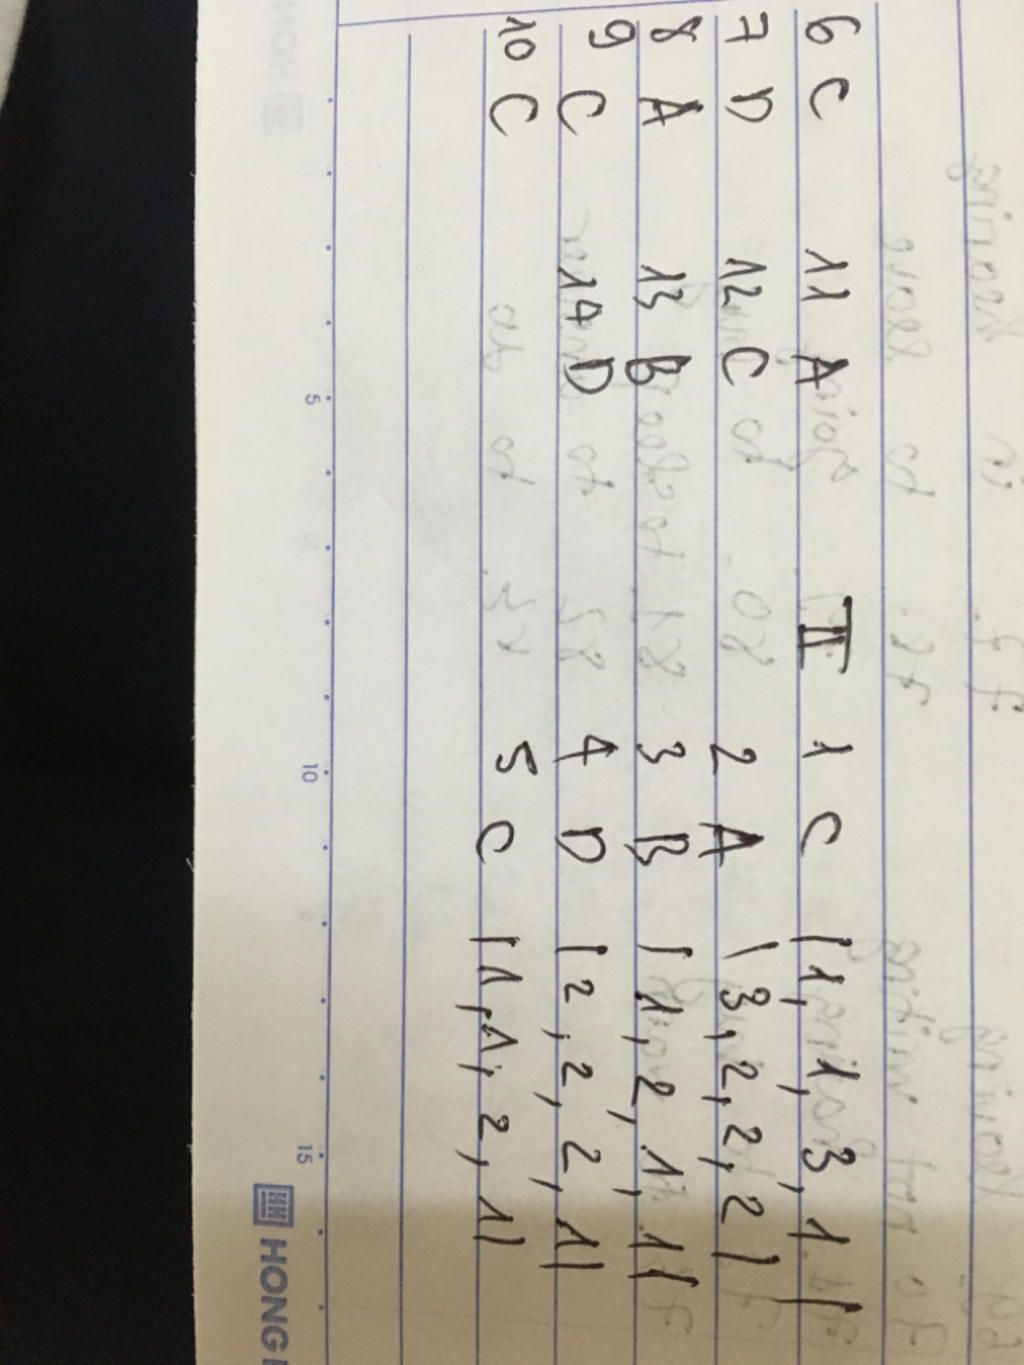 6 C 11 A II 1 C (1, 1, 3, 1)
7 D 12 C 2 A (3, 2, 2, 2)
8 A 13 B 3 B (1, 2, 1, 1)
9 C 14 D 4 D (2, 2, 2, 1)
10 C 5 C (1, 1, 2, 1)
5 10 15
HONG